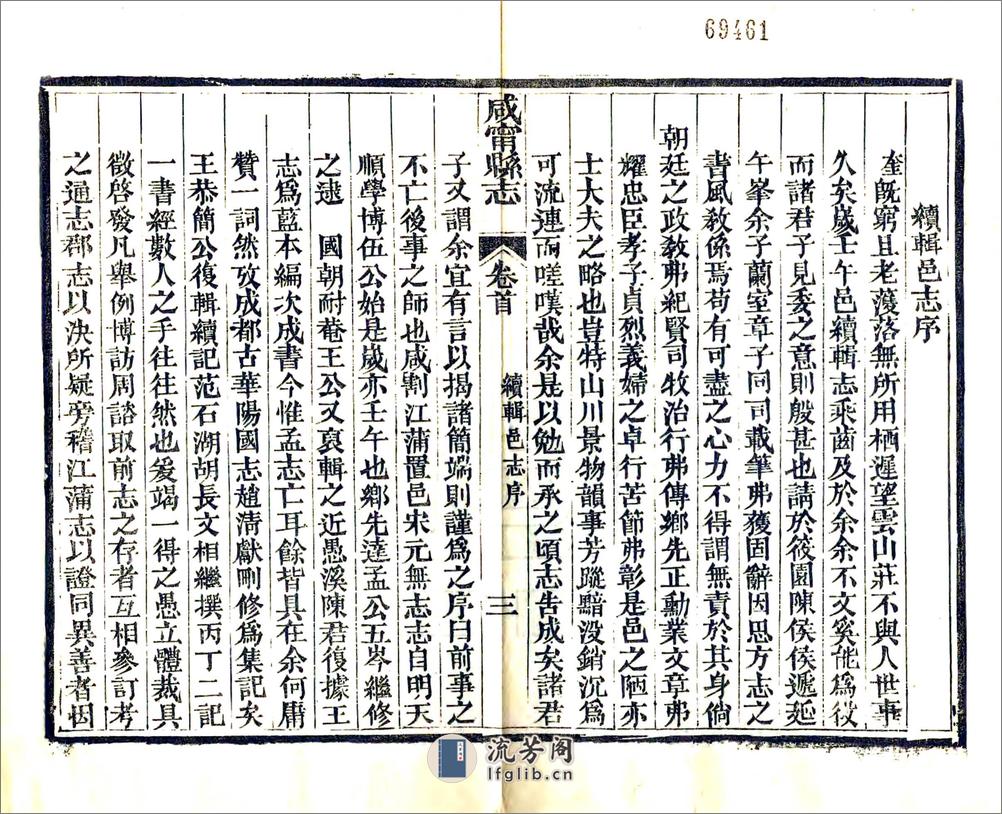 69461
續輯邑志序
奎既窮且老濩落無所用栖遲望雲山莊不與人世事
久矣歲壬午邑續輯志乘齒及於余余不文奚能爲役
而諸君子見委之意則殷甚也請於筱園陳侯侯遞延
午峯余子蘭室章子同司載筆弗獲固辭因思方志之
書風敎係焉苟有可盡之心力不得謂無責於其身倘
朝廷之政敎弗紀賢司牧治行弗傳鄉先正勳業文章弗
耀忠臣孝子貞烈義婦之卓行苦節弗彰是邑之陋亦
士大夫之略也豈特山川景物韻事芳蹤黯没銷沉爲
可流連而嗟嘆哉余是以勉而承之頃志告成矣諸君
咸甯縣志 卷首 續輯邑志序 三
子又謂余宜有言以揭諸簡端則謹爲之序曰前事之
不亡後事之師也咸割江蒲置邑宋元無志志自明天
順學博伍公始是歲亦壬午也鄉先達孟公五岑繼修
之逮 國朝耐菴王公又裒輯之近愚溪陳君復據王
志爲藍本編次成書今惟孟志亡耳餘皆具在余何庸
贊一詞然攷成都古華陽國志趙清獻刪修爲集記矣
王恭簡公復輯續記范石湖胡長文相繼撰丙丁二記
一書經數人之手往往然也爰竭一得之愚立體裁具
徵啓發凡舉例博訪周諮取前志之存者互相參訂考
之通志郡志以決所疑旁稽江蒲志以證同異善者因
流芳阁
lfglib.cn